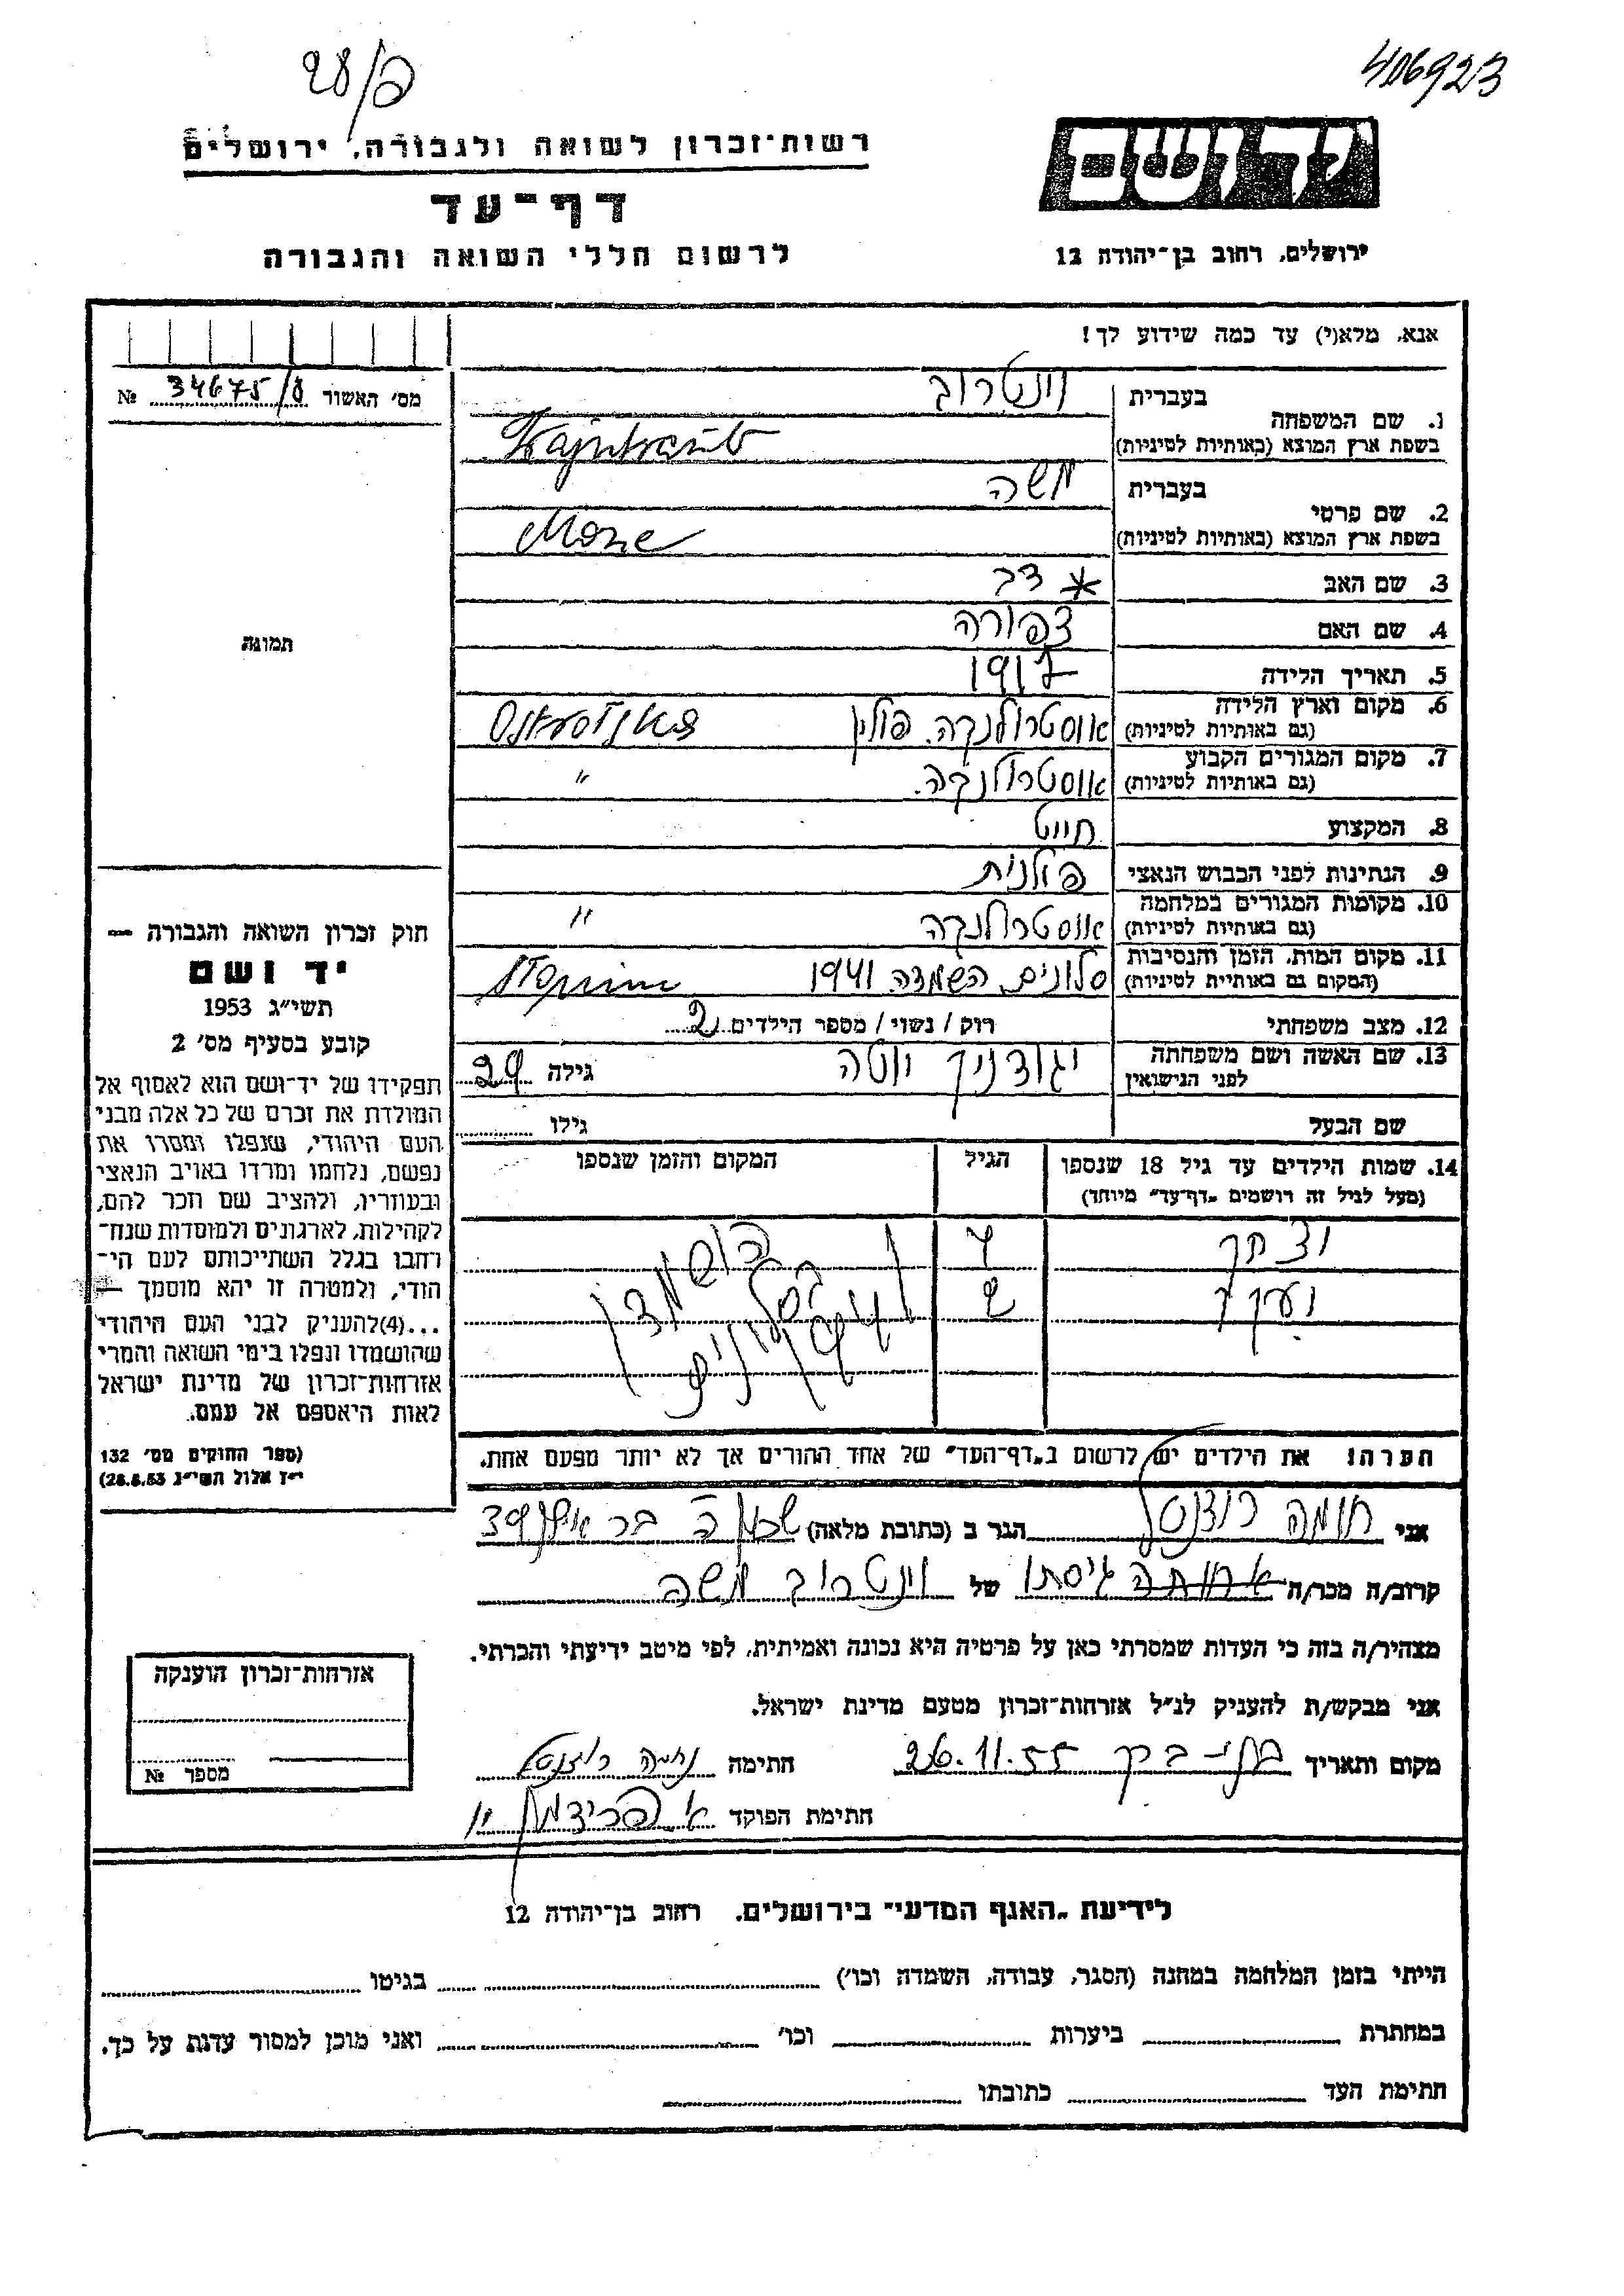 28/פ
406923
רשות־זכרון לשואה ולגבורה, ירושלים
יד ושם
דף־עד
לרשום חללי השואה והגבורה
ירושלים, רחוב בן־יהודה 12
אנא, מלא(י) עד כמה שידוע לך!
מס׳ האשור 34675/8 №
1. שם המשפחה
בעברית וינטרוב
בשפת ארץ המוצא (באותיות לטיניות) Wajntraub
2. שם פרטי
בעברית משה
בשפת ארץ המוצא (באותיות לטיניות)
3. שם האב * דב
4. שם האם צפורה
5. תאריך הלידה 1917
6. מקום וארץ הלידה (גם באותיות לטיניות) אוסטרולנקה. פולין
7. מקום המגורים הקבוע (גם באותיות לטיניות) אוסטרולנקה. "
8. המקצוע חייט
9. הנתינות לפני הכבוש הנאצי פולנית
10. מקומות המגורים במלחמה (גם באותיות לטיניות) אוסטרולנקה "
11. מקום המות, הזמן והנסיבות (המקום גם באותיות לטיניות) סלונים השמדה 1941
12. מצב משפחתי רוק / נשוי / מספר הילדים 2
13. שם האשה ושם משפחתה לפני הנישואין יגודניק יוטה גילה 29
שם הבעל גילו
14. שמות הילדים עד גיל 18 שנספו הגיל המקום והזמן שנספו
(מעל לגיל זה רושמים „דף־עד״ מיוחד)
יצחק 4 הושמדו
יעקב 2 בסלונים
הערה! את הילדים יש לרשום ב„דף־העד״ של אחד ההורים אך לא יותר מפעם אחת.
תמונה
חוק זכרון השואה והגבורה —
יד ושם
תשי״ג 1953
קובע בסעיף מס׳ 2
תפקידו של יד־ושם הוא לאסוף אל
המולדת את זכרם של כל אלה מבני
העם היהודי, שנפלו ומסרו את
נפשם, נלחמו ומרדו באויב הנאצי
ובעוזריו, ולהציב שם וזכר להם,
לקהילות, לארגונים ולמוסדות שנח־
רבו בגלל השתייכותם לעם הי־
הודי, ולמטרה זו יהא מוסמך —
...(4) להעניק לבני העם היהודי
שהושמדו ונפלו בימי השואה והמרי
אזרחות־זכרון של מדינת ישראל
לאות היאספם אל עמם.
(ספר החוקים מס׳ 132
י״ז אלול תשי״ג 28.8.53)
אני נחמה רוזנטל הגר ב (כתובת מלאה) 39
קרוב/ה מכר/ה גיסתו של וינטרוב משה
מצהיר/ה בזה כי העדות שמסרתי כאן על פרטיה היא נכונה ואמיתית, לפי מיטב ידיעתי והכרתי.
אני מבקש/ת להעניק לנ״ל אזרחות־זכרון מטעם מדינת ישראל.
מקום ותאריך בני-ברק 26.11.55 חתימה נחמה רוזנטל
חתימת הפוקד א פרידמן
אזרחות־זכרון הוענקה
מספר №
לידיעת „האגף המדעי״ בירושלים. רחוב בן־יהודה 12
הייתי בזמן המלחמה במחנה (הסגר, עבודה, השמדה וכו׳) בגיטו
במחתרת ביערות וכו׳ ואני מוכן למסור עדות על כך.
חתימת העד כתובתו